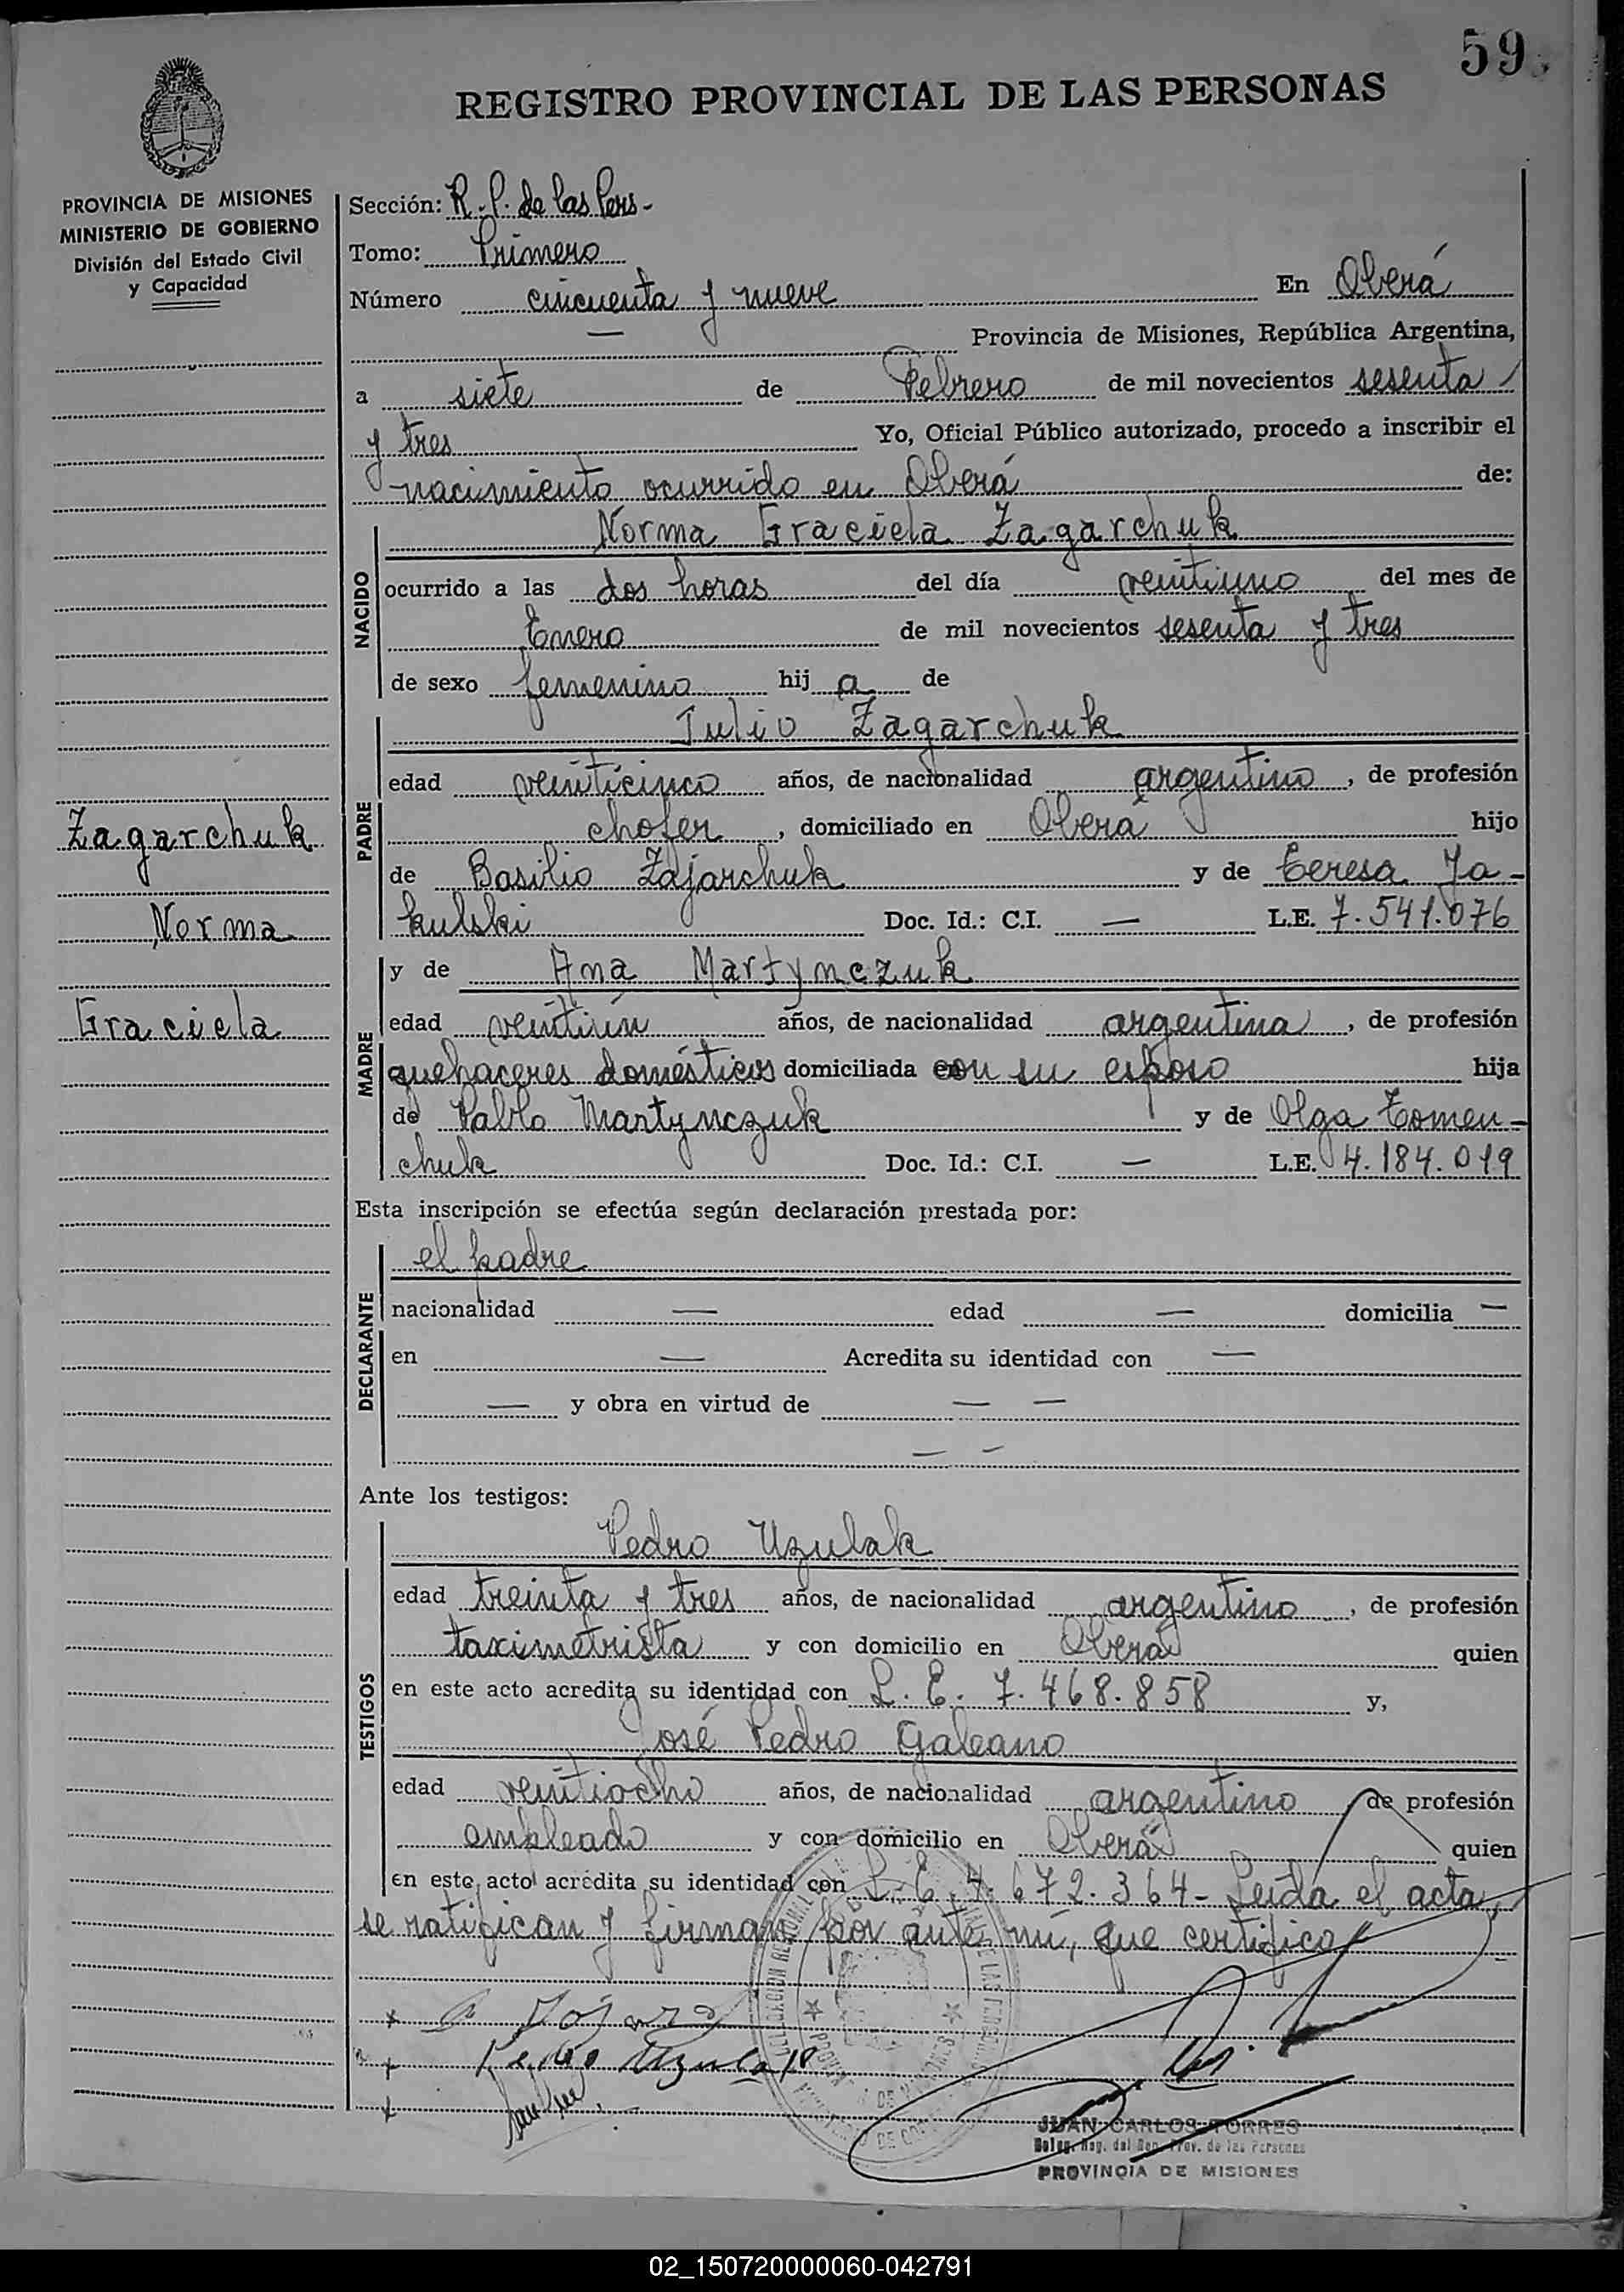 59
REGISTRO PROVINCIAL DE LAS PERSONAS
PROVINCIA DE MISIONES
MINISTERIO DE GOBIERNO
División del Estado Civil
y Capacidad
Sección: R. P. de las Pers-
Tomo: Primero
Número cincuenta y nueve En Oberá
— Provincia de Misiones, República Argentina,
a siete de Febrero de mil novecientos sesenta
y tres Yo, Oficial Público autorizado, procedo a inscribir el
nacimiento ocurrido en Oberá de:
NACIDO
Norma Graciela Zagarchuk
ocurrido a las dos horas del día veintiuno del mes de
Enero de mil novecientos sesenta y tres
de sexo femenino hij a de
PADRE
Julio Zagarchuk
edad veinticinco años, de nacionalidad argentino, de profesión
chofer, domiciliado en Oberá hijo
de Basilio Zajarchuk y de Teresa Ja-
kulski Doc. Id.: C.I. — L.E. 7.541.076
MADRE
y de Ana Martynczuk
edad veintiún años, de nacionalidad argentina, de profesión
quehaceres domésticos domiciliada con su esposo hija
de Pablo Martynczuk y de Olga Tomen-
chuk Doc. Id.: C.I. — L.E. 4.184.019
Zagarchuk
Norma
Graciela
Esta inscripción se efectúa según declaración prestada por:
DECLARANTE
el padre
nacionalidad — edad — domicilia —
en — Acredita su identidad con —
— y obra en virtud de — —
— —
Ante los testigos:
TESTIGOS
Pedro Uzulak
edad treinta y tres años, de nacionalidad argentino, de profesión
taximetrista y con domicilio en Oberá quien
en este acto acredita su identidad con L. E. 7.468.858 y,
José Pedro Galeano
edad veintiocho años, de nacionalidad argentino de profesión
empleado y con domicilio en Oberá quien
en este acto acredita su identidad con L. E. 7.672.364- Leída el acta,
se ratifican y firman por ante mí, que certifico
x
x Pedro Uzulak
x
JUAN CARLOS TORRES
Deleg. Reg. del Reg. Prov. de las Personas
PROVINCIA DE MISIONES
02_150720000060-042791